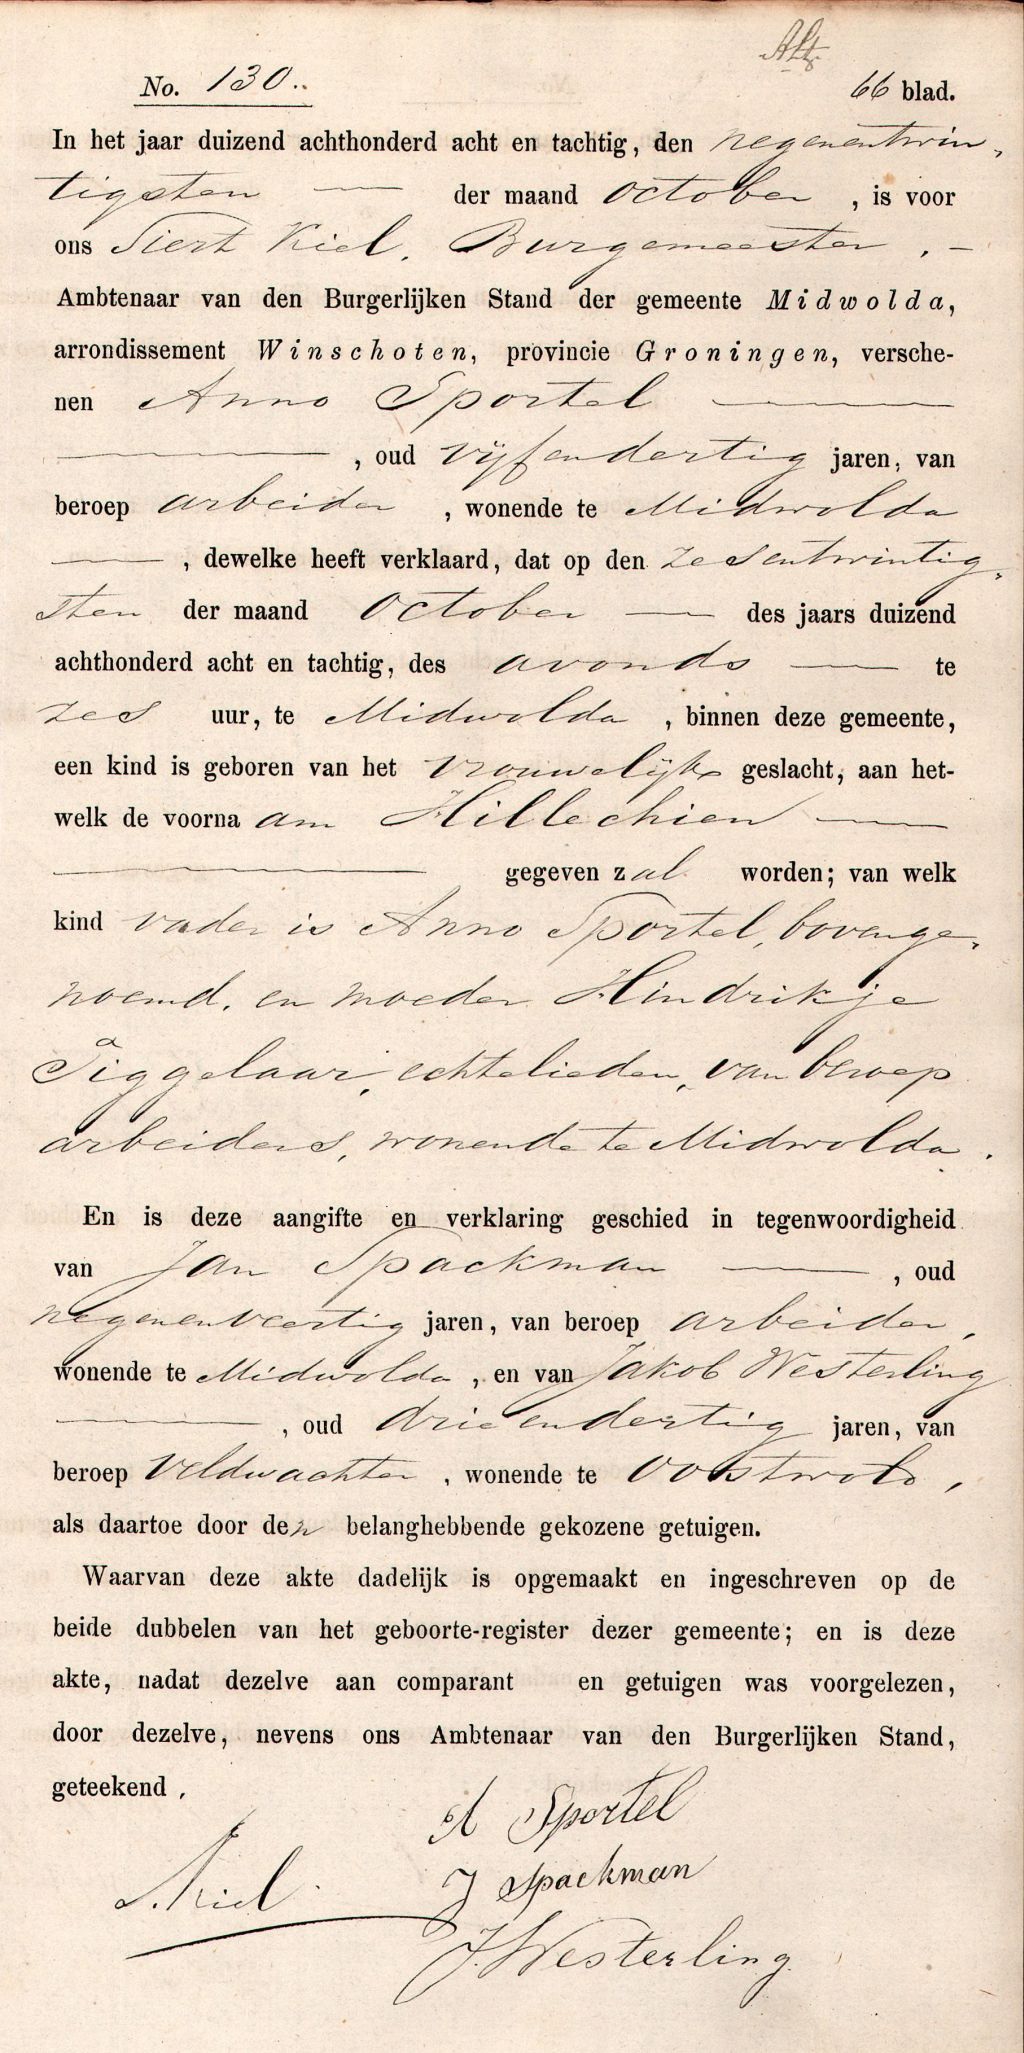 No. 130.
66 blad.
In het jaar duizend achthonderd acht en tachtig, den negenentwin-
tigsten — der maand October, is voor
ons Siert Kiel, Burgemeester, —
Ambtenaar van den Burgerlijken Stand der gemeente Midwolda,
arrondissement Winschoten, provincie Groningen, versche-
nen Anno Sportel —
—, oud vijfendertig jaren, van
beroep arbeider, wonende te Midwolda
—, dewelke heeft verklaard, dat op den zesentwintig-
sten der maand October — des jaars duizend
achthonderd acht en tachtig, des avonds — te
zes uur, te Midwolda, binnen deze gemeente,
een kind is geboren van het vrouwelijke geslacht, aan het-
welk de voornaam Hillechien —
— gegeven zal worden; van welk
kind vader is Anno Sportel, bovenge-
noemd, en moeder Hindrikje
Tiggelaar, echtelieden, van beroep
arbeiders, wonende te Midwolda.
En is deze aangifte en verklaring geschied in tegenwoordigheid
van Jan Spackman —, oud
negenenveertig jaren, van beroep arbeider,
wonende te Midwolda, en van Jakob Westerling
—, oud drieendertig jaren, van
beroep Veldwachter, wonende te Oostwold,
als daartoe door den belanghebbende gekozene getuigen.
Waarvan deze akte dadelijk is opgemaakt en ingeschreven op de
beide dubbelen van het geboorte-register dezer gemeente; en is deze
akte, nadat dezelve aan comparant en getuigen was voorgelezen,
door dezelve, nevens ons Ambtenaar van den Burgerlijken Stand,
geteekend.
A Sportel
S. Kiel.
J Spackman
J. Westerling